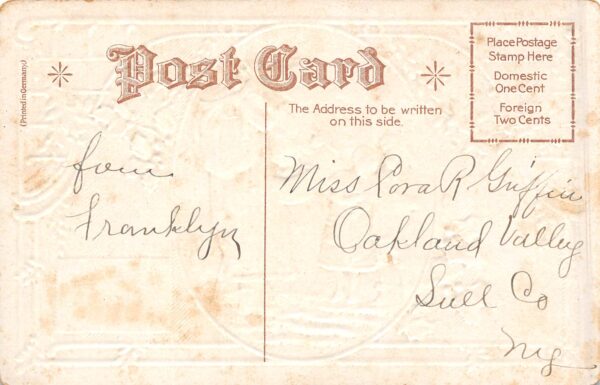 (Printed in Germany)
Post Card
The Address to be written
on this side.
Place Postage
Stamp Here
Domestic
One Cent
Foreign
Two Cents
from
Franklyn
Miss Cora R Griffin
Oakland Valley
Sull Co
Ny